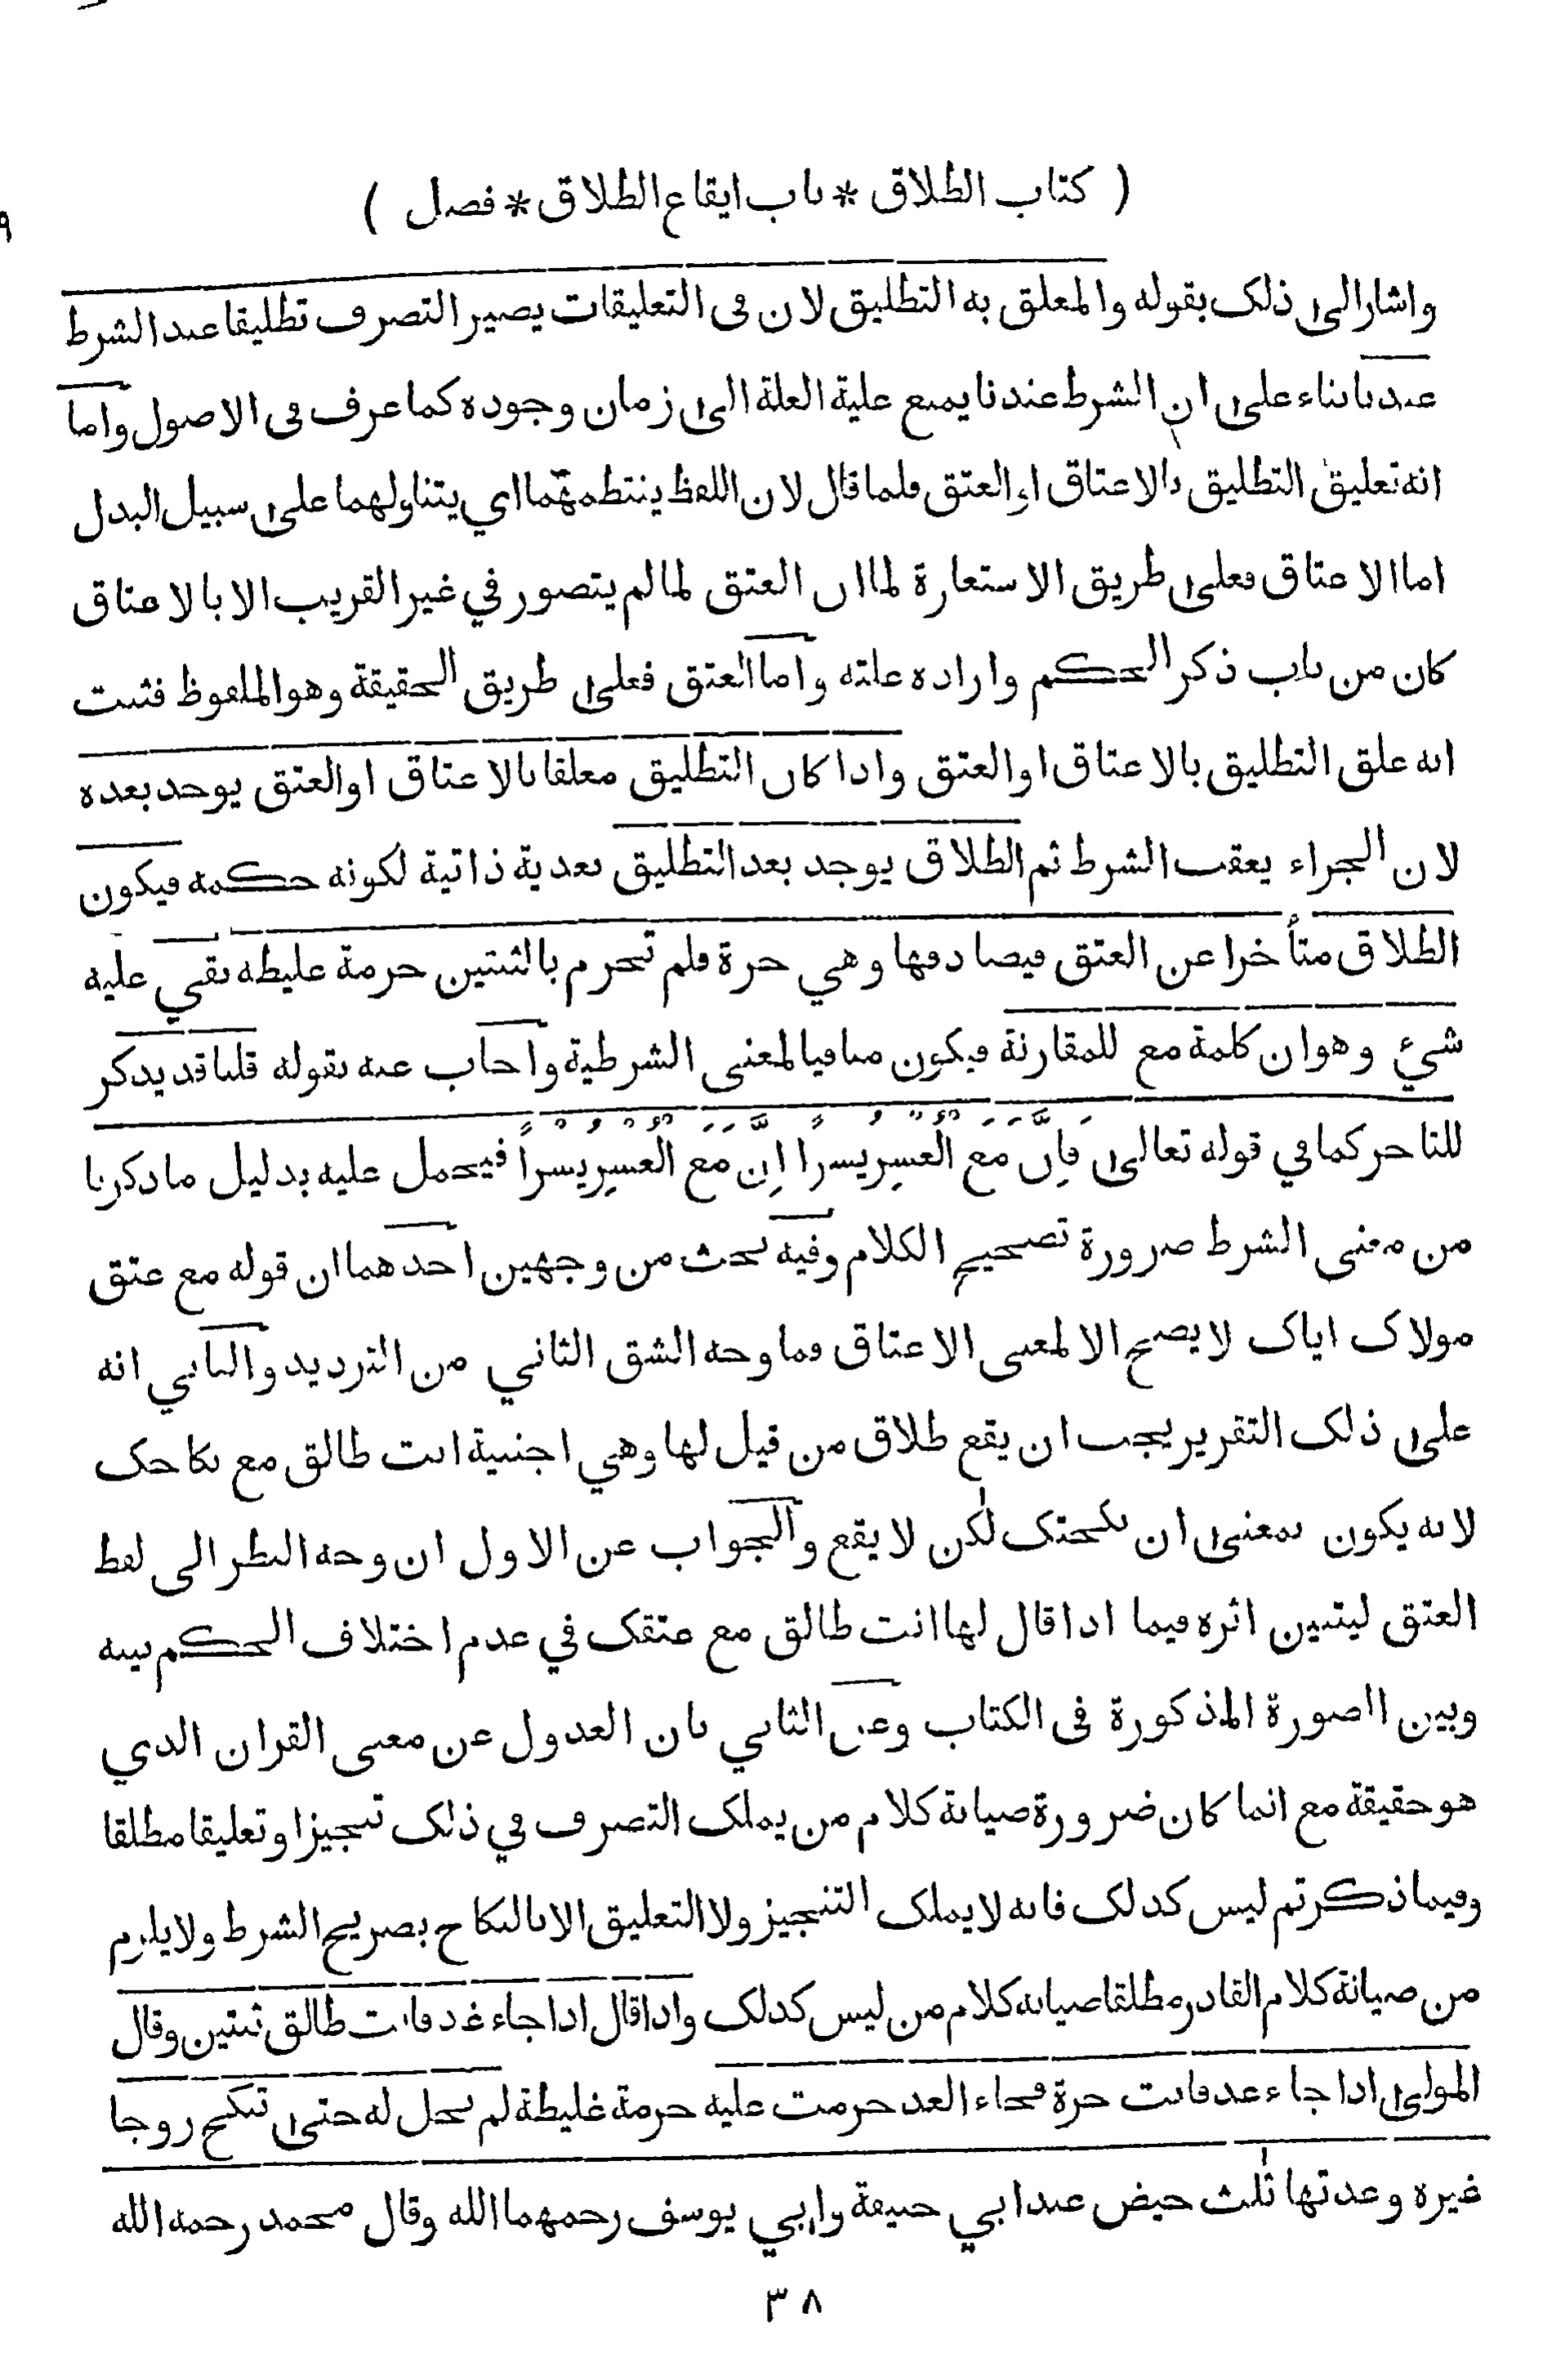 ( كتاب الطلاق * باب ايقاع الطلاق * فصل )
واشار الى ذلك بقوله والمعلق به التطليق لان في التعليقات يصير التصرف تطليقا عند الشرط
عندنا بناء على ان الشرط عندنا يمنع علية العلة الى زمان وجوده كما عرف في الاصول واما
انه تعليق التطليق بالاعتاق او العتق فلما قال لان اللفظ ينتظمهما اي يتناولهما على سبيل البدل
اما الاعتاق فعلى طريق الاستعارة لما ان العتق لما لم يتصور في غير القريب الا بالاعتاق
كان من باب ذكر الحكم وارادة علته واما العتق فعلى طريق الحقيقة وهو الملفوظ فثبت
انه علق التطليق بالاعتاق او العتق واذا كان التطليق معلقا بالاعتاق او العتق يوجد بعده
لان الجزاء يعقب الشرط ثم الطلاق يوجد بعد التطليق بعدية ذاتية لكونه حكمه فيكون
الطلاق متأخرا عن العتق فيصادفها وهي حرة فلم تحرم بالثنتين حرمة غليظة بقي عليه
شيء وهو ان كلمة مع للمقارنة فيكون منافيا لمعنى الشرطية واجاب عنه بقوله قلنا قد يذكر
للتاخر كما في قوله تعالى فَاِنَّ مَعَ الْعُسْرِ يُسْرًا اِنَّ مَعَ الْعُسْرِ يُسْرًا فيحمل عليه بدليل ما ذكرنا
من معنى الشرط ضرورة تصحيح الكلام وفيه بحث من وجهين احدهما ان قوله مع عتق
مولاك اياك لا يصح الا لمعنى الاعتاق فما وجه الشق الثاني من الترديد والثاني انه
على ذلك التقرير يجب ان يقع طلاق من قيل لها وهي اجنبية انت طالق مع نكاحك
لانه يكون بمعنى ان نكحتك لكن لا يقع والجواب عن الاول ان وجه النظر الى لفظ
العتق ليتبين اثره فيما اذا قال لها انت طالق مع عتقك في عدم اختلاف الحكم بينه
وبين الصورة المذكورة في الكتاب وعن الثاني بان العدول عن معنى القران الذي
هو حقيقة مع انما كان ضرورة صيانة كلام من يملك التصرف في ذلك تنجيزا وتعليقا مطلقا
وفيما ذكرتم ليس كذلك فانه لا يملك التنجيز ولا التعليق الا بالنكاح بصريح الشرط ولا يلزم
من صيانة كلام القادر مطلقا صيانة كلام من ليس كذلك واذا قال اذا جاء غد فانت طالق ثنتين وقال
المولى اذا جاء غد فانت حرة فجاء الغد حرمت عليه حرمة غليظة لم تحل له حتى تنكح زوجا
غيره وعدتها ثلث حيض عند ابي حنيفة وابي يوسف رحمهما الله وقال محمد رحمه الله
٣٨